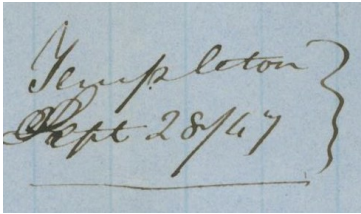 Templeton
Sept 28/47